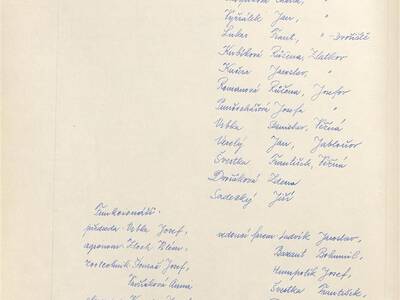 Výžrálek Jan, "
Lukeš Frant., " - Dvořiště
Kubtková Růžena, Zlatkov
Kučera Jaroslav, "
Romanová Růžena, Josefov
Punčochářová Josefa "
Vrbka Stanislav, Věžná
Veselý Jan, Jabloňov
Švestka František, Věžná
Dvořáková Zdena
Sadecký Jiří
Funkcionáři:
předseda - Vrbka Josef,
agronom - Zloch Vilém,
zootechnik - Tomáš Josef,
Anna
vedoucí farem: Ludvík Jaroslav,
Bazant Bohumil,
Humpolík Josef,
Švestka František,